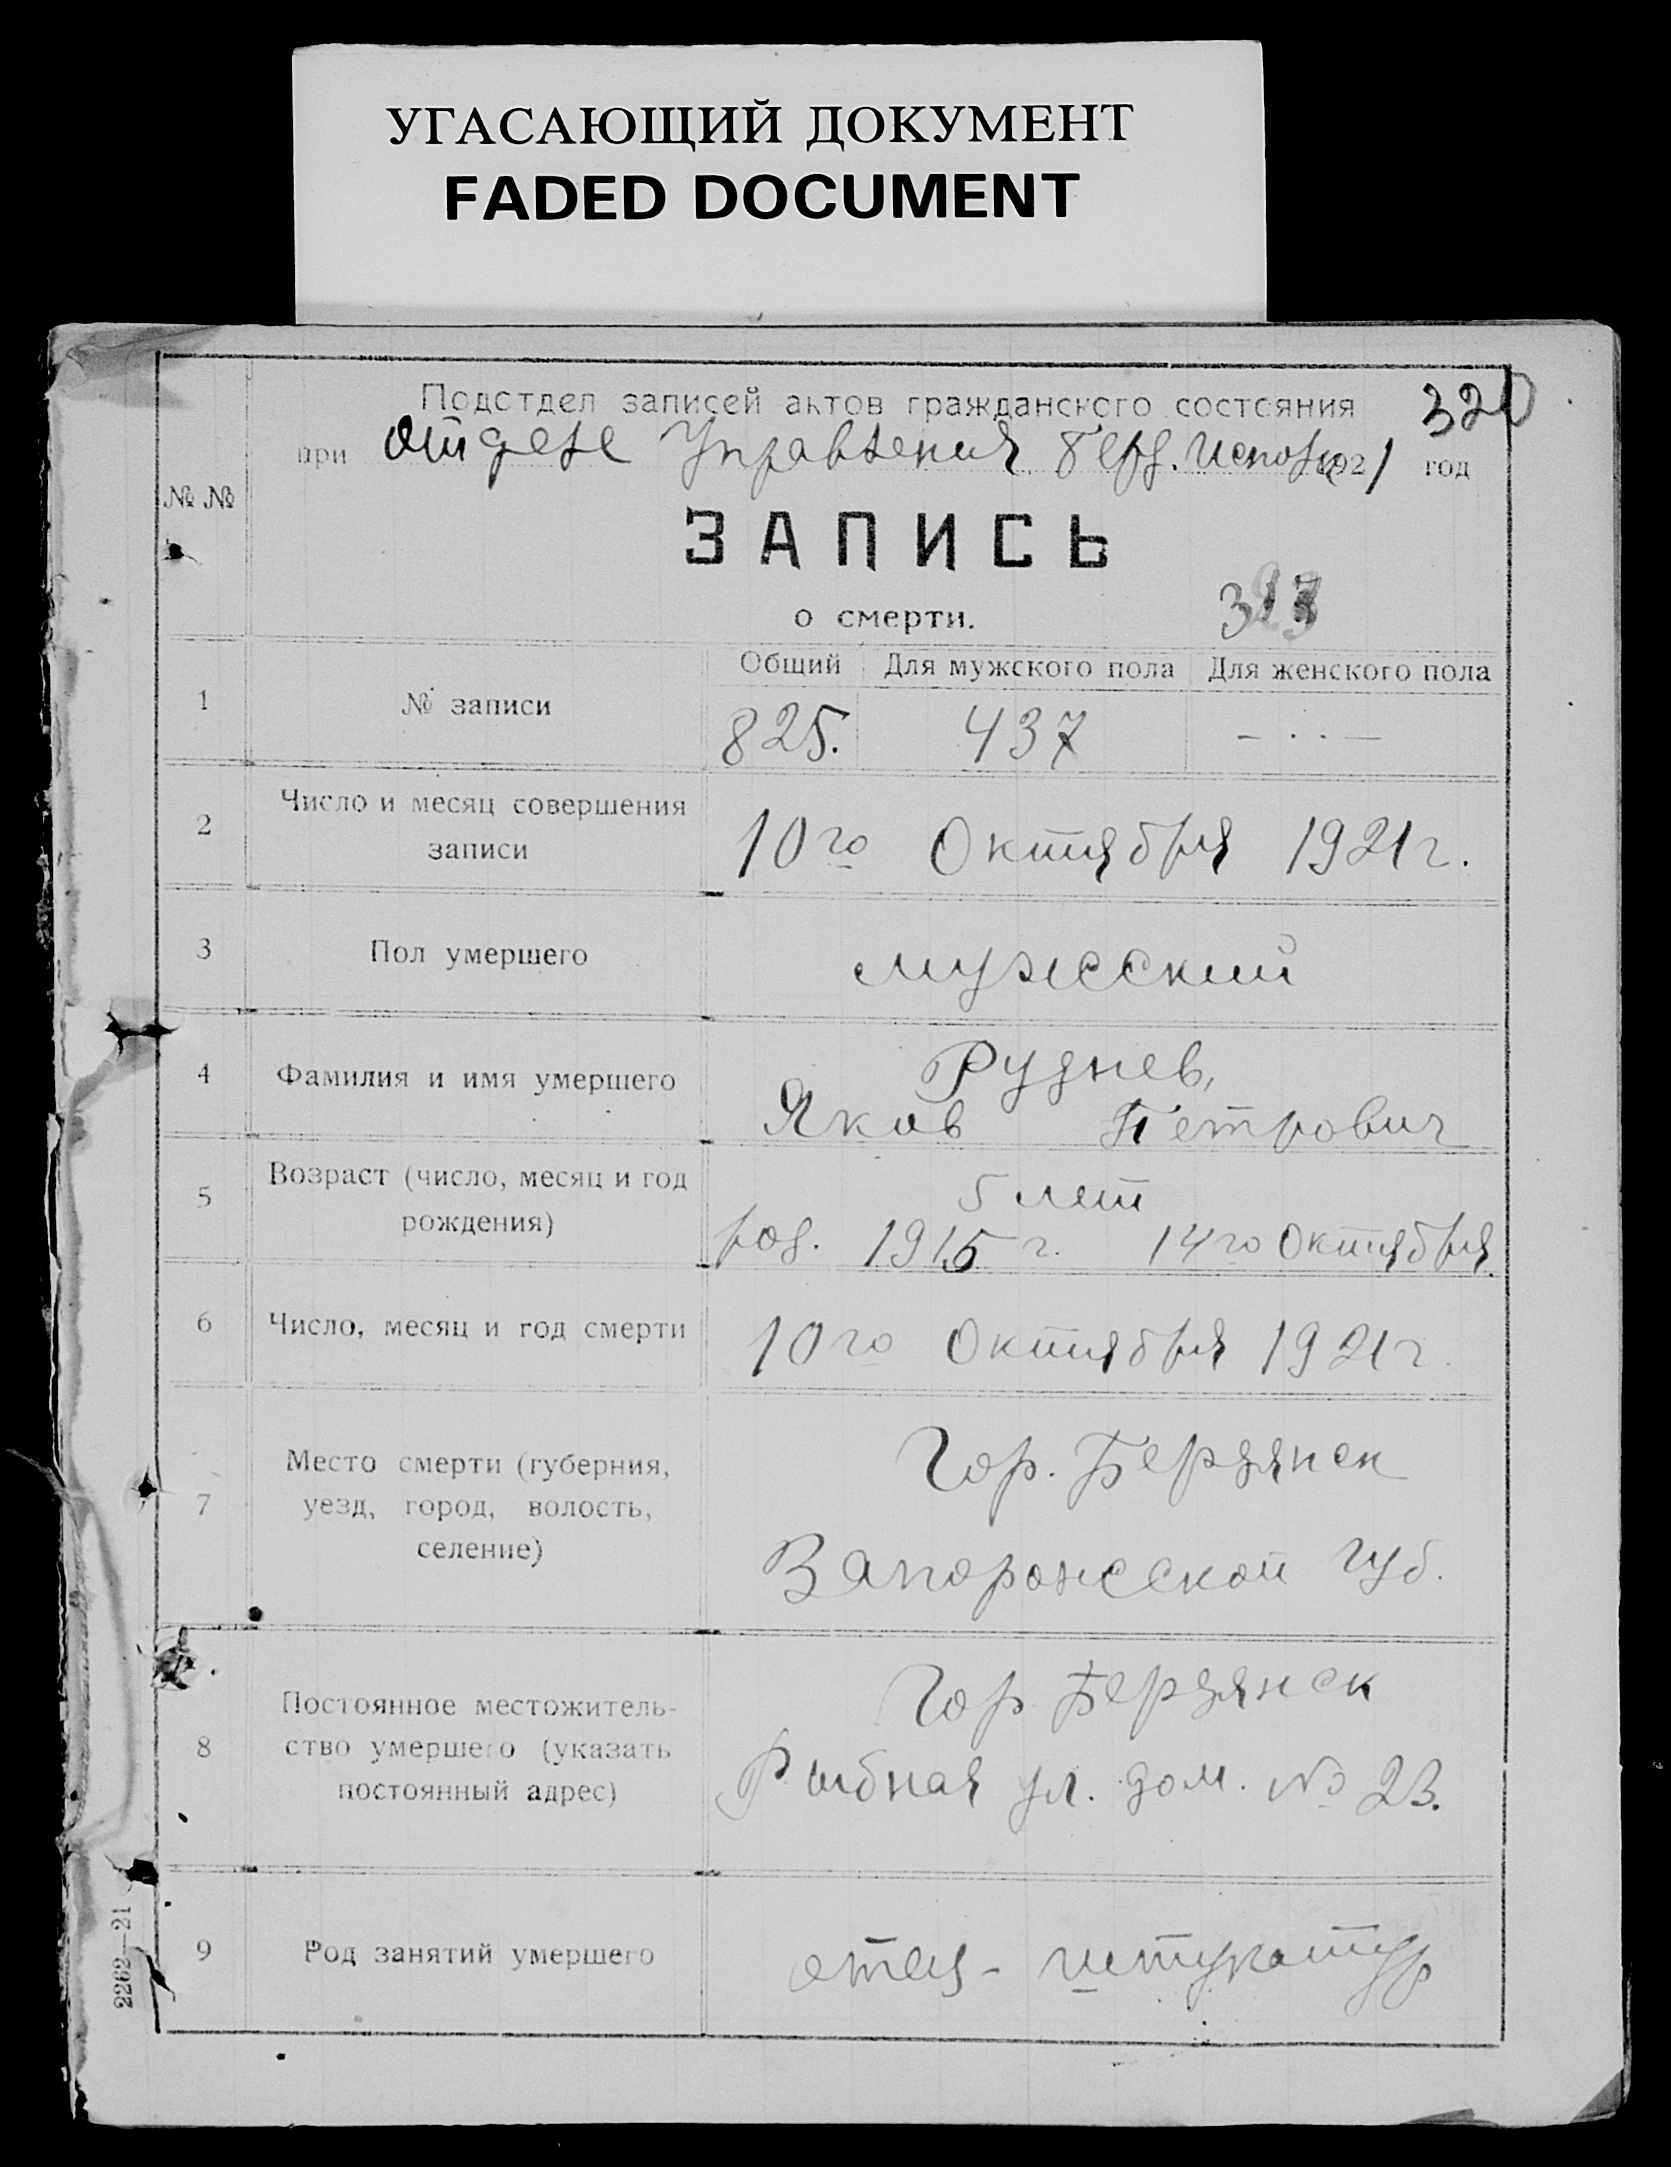 УГАСАЮЩИЙ ДОКУМЕНТ
FADED DOCUMENT
Подотдел записей актов гражданского состояния
320
при отделе Управления Берд. Исполк. 1921 год
№ №
ЗАПИСЬ
о смерти.
Общий Для мужского пола Для женского пола
1 № записи 825. 437 - . . -
2 Число и месяц совершения
записи
10го Октября 1921 г.
3 Пол умершего мужеский
4 Фамилия и имя умершего
Руднев,
Яков Петрович
5 Возраст (число, месяц и год
рождения)
5 лет
род. 1915 г. 14го Октября.
6 Число, месяц и год смерти 10го Октября 1921 г
7 Место смерти (губерния,
уезд, город, волость,
селение)
Гор. Бердянск
Запорожеской губ.
8 Постоянное местожитель-
ство умершего (указать
постоянный адрес)
Гор. Бердянск
Рыбная ул. дом. № 23.
9 Род занятий умершего отец - штукатур
2262—21